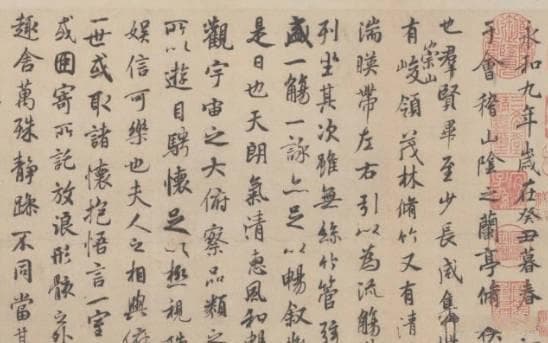 永和九年歲在癸丑暮春
于會稽山陰之蘭亭脩
也羣賢畢至少長咸集
有崇山峻領茂林脩竹又有清
湍暎帶左右引以為流觴
列坐其次雖無絲竹管弦
盛一觴一詠亦足以暢叙
是日也天朗氣清惠風和
觀宇宙之大俯察品類之
所以遊目騁懷足以極視
娛信可樂也夫人之相與俯
一世或取諸懷抱悟言一室
或因寄所託放浪形骸之外
趣舍萬殊靜躁不同當其